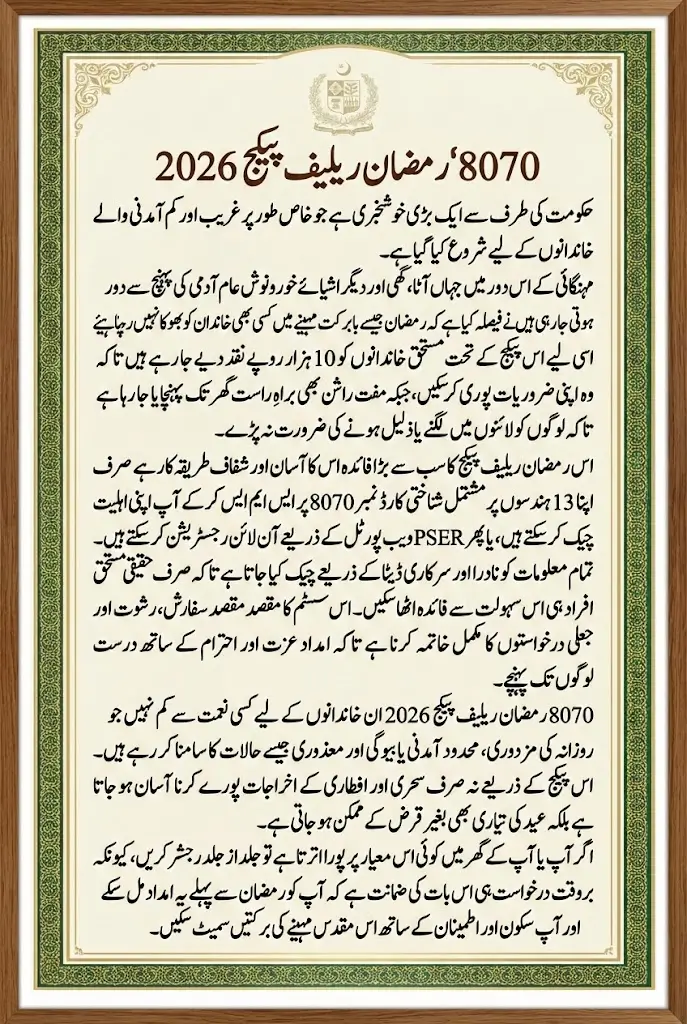 8070‘رمضان ریلیف پیکج 2026
حکومت کی طرف سے ایک بڑی خوشخبری ہے جو خاص طور پر غریب اور کم آمدنی والے
خاندانوں کے لیے شروع کیا گیا ہے۔
مہنگائی کے اس دور میں جہاں آٹا، گھی اور دیگر اشیائے خورونوش عام آدمی کی پہنچ سے دور
ہوتی جا رہی ہیں نے فیصلہ کیا ہے کہ رمضان جیسے بابرکت مہینے میں کسی بھی خاندان کو بھوکا نہیں
اسی لیے اس پیکج کے تحت مستحق خاندانوں کو 10 ہزار روپے نقد دیے جا رہے ہیں تاکہ
وہ اپنی ضروریات پوری کر سکیں، جبکہ مفت راشن بھی براہِ راست گھر تک پہنچایا جا رہا ہے
تاکہ لوگوں کو لائنوں میں لگنے یا ذلیل ہونے کی ضرورت نہ پڑے۔
اس رمضان ریلیف پیکج کا سب سے بڑا فائدہ اس کا آسان اور شفاف طریقہ کار ہے صرف
اپنا 13 ہندسوں پر مشتمل شناختی کارڈ نمبر 8070 پر ایس ایم ایس کر کے آپ اپنی اہلیت
چیک کر سکتے ہیں، یا پھر PSER ویب پورٹل کے ذریعے آن لائن رجسٹریشن کر سکتے ہیں۔
تمام معلومات کو نادرا اور سرکاری ڈیٹا کے ذریعے چیک کیا جاتا ہے تاکہ صرف حقیقی مستحق
افراد ہی اس سہولت سے فائدہ اٹھا سکیں۔ اس سسٹم کا مقصد مقصد سفارش، رشوت اور
جعلی درخواستوں کا مکمل خاتمہ کرنا ہے تاکہ امداد عزت اور احترام کے ساتھ درست
لوگوں تک پہنچے۔
8070 رمضان ریلیف پیکج 2026 ان خاندانوں کے لیے کسی نعمت سے کم نہیں جو
روزانہ کی مزدوری، محدود آمدنی یا بیوگی اور معذوری جیسے حالات کا سامنا کر رہے ہیں۔
اس پیکج کے ذریعے نہ صرف سحری اور افطاری کے اخراجات پورے کرنا آسان ہو جاتا
ہے بلکہ عید کی تیاری بھی بغیر قرض کے ممکن ہو جاتی ہے۔
اگر آپ یا آپ کے گھر میں کوئی اس معیار پر پورا اترتا ہے تو جلد از جلد رجسٹر کریں، کیونکہ
بروقت درخواست ہی اس بات کی ضمانت ہے کہ آپ کو رمضان سے پہلے یہ امداد مل سکے
اور آپ سکون اور اطمینان کے ساتھ اس مقدس مہینے کی برکتیں سمیٹ سکیں۔